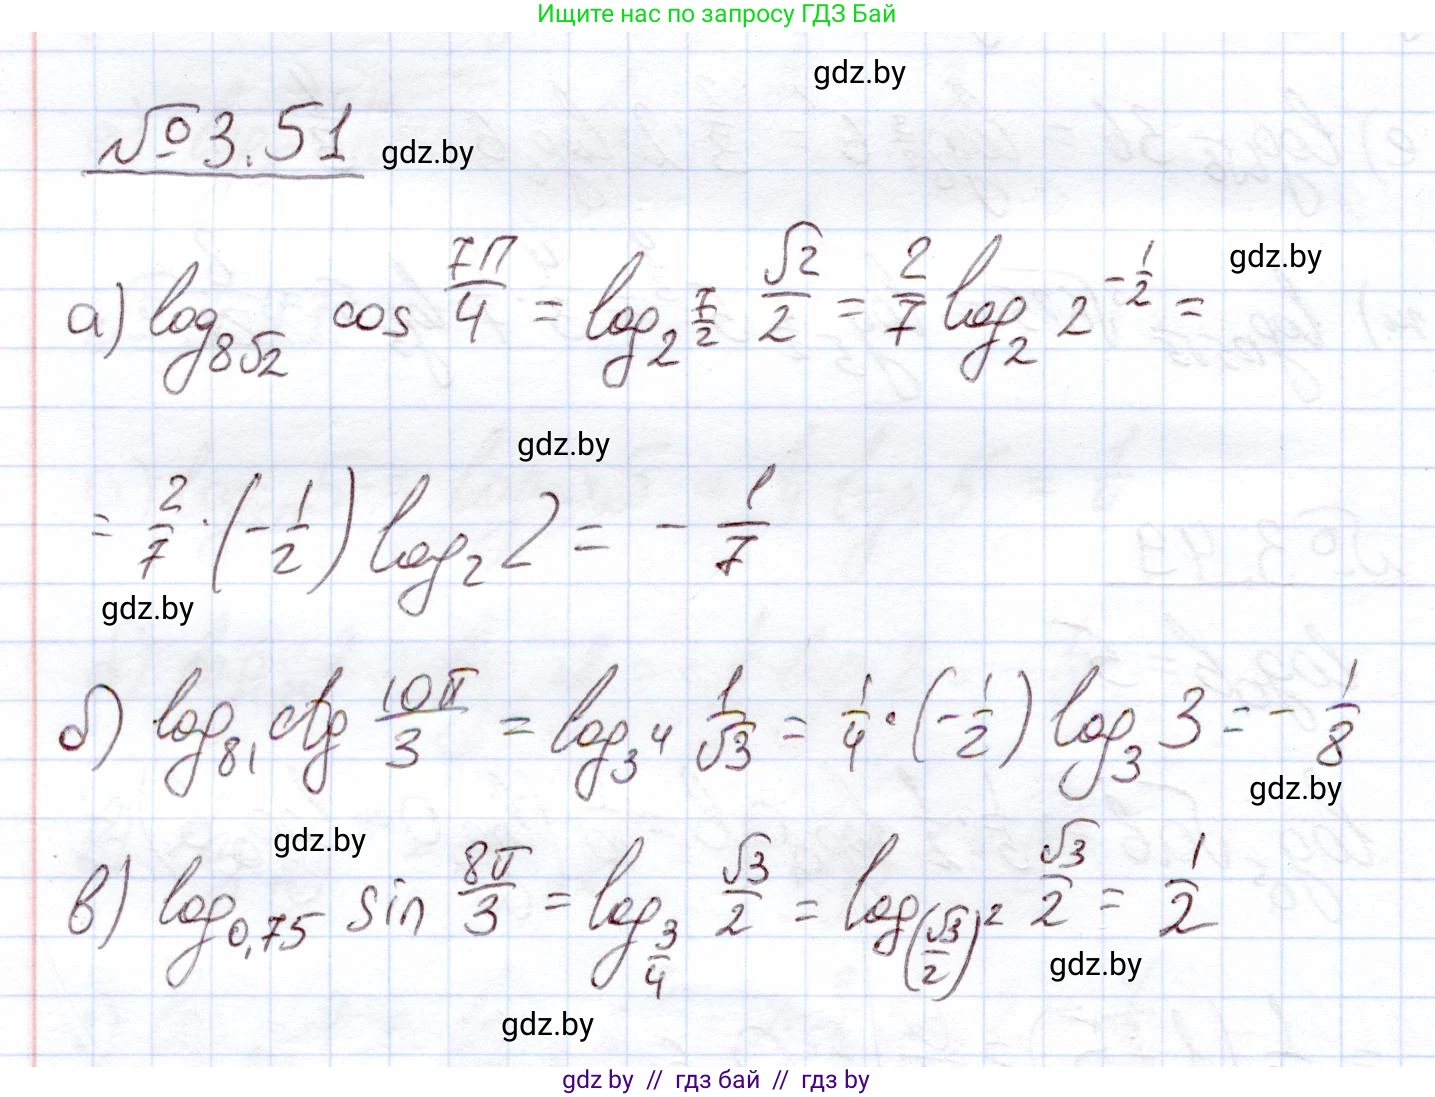 Ищите нас по запросу ГДЗ Бай
gdz.by
№ 3.51 gdz.by
а) log_{8√2} cos 7П/4 = log_{2^{7/2}} √2/2 = 2/7 log_2 2^{-1/2} = gdz.by
gdz.by
= 2/7 · (-1/2) log_2 2 = - 1/7
gdz.by
б) log_{81} ctg 10π/3 = log_{3^4} 1/√3 = 1/4 · (-1/2) log_3 3 = - 1/8
gdz.by
gdz.by
в) log_{0,75} sin 8π/3 = log_{3/4} √3/2 = log_{(√3/2)^2} √3/2 = 1/2
gdz.by
gdz.by
gdz by // гдз бай // гдз by